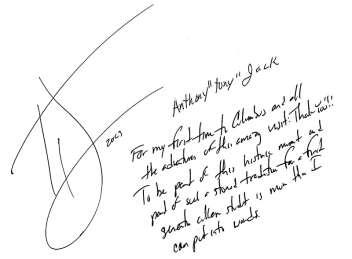 Anthony "Tony" Jack
2023
For my first time to Columbus and all
the adventures of this amazing visit. Thank you!!
To be part of this historic moment and
part of such a storied tradition for a first
generation college student is more than I
can put into words.